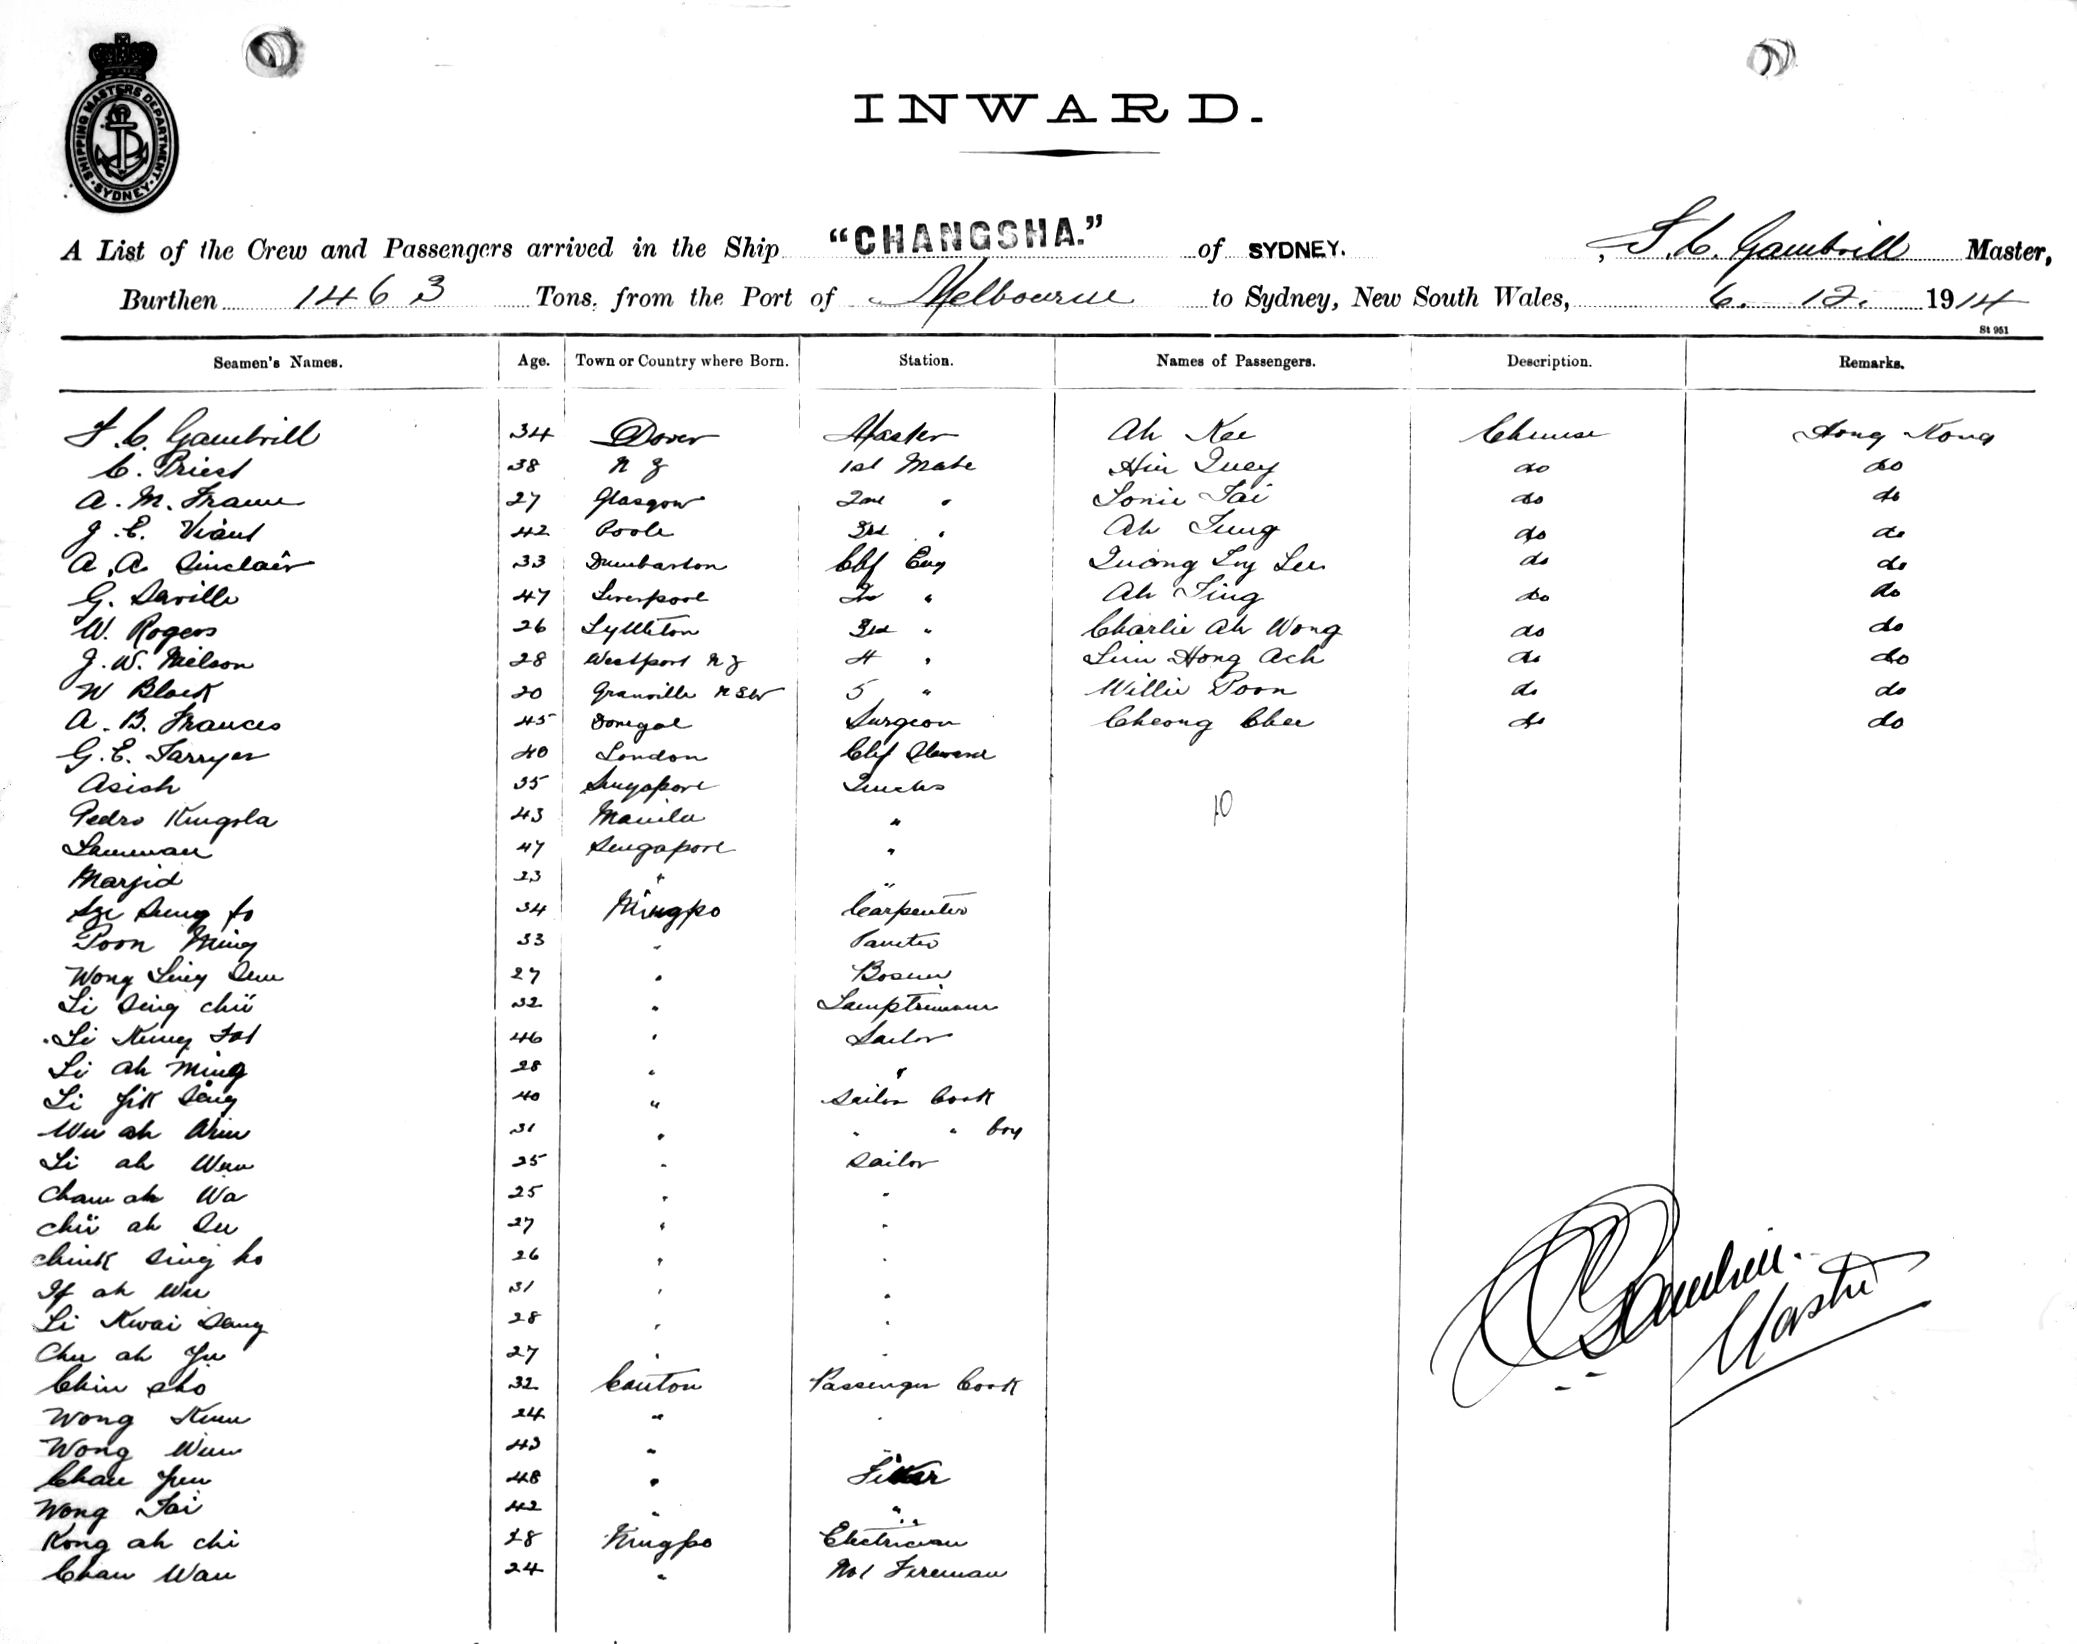 SHIPPING MASTERS DEPARTMENT. SYDNEY.
INWARD.
A List of the Crew and Passengers arrived in the Ship "CHANGSHA." of SYDNEY. Gambrill Master,
Burthen 1463 Tons, from the Port of Melbourne to Sydney, New South Wales, 6. 12. 1914
St 951
Seamen's Names. Age. Town or Country where Born. Station. Names of Passengers. Description. Remarks.
Gambrill 34 Dover Master Ah Kee Chinese Hong Kong
C. Priest 38 N Z 1st Mate Hin Quey do do
A. M. Frame 27 Glasgow 2nd " Tai do do
J. E. Viant 42 Poole 3rd " Ah do do
A. A. Sinclair 33 Dumbarton Chf Eng Quong Lee do do
G. Saville 47 Liverpool 2nd " Ah do do
W. Rogers 26 Lyttleton 3rd " Charlie Ah Wong do do
J. W. Nielson 28 Westport N Z 4 " Hong do do
W Black 20 Granville N S W 5 " Willie Poon do do
A. B. Frances 45 Donegal Surgeon Cheong Chee do do
G. E. Tarryer 40 London Chf Steward
Asish 35 Singapore
Pedro 43 Manila " 10
47 Singapore "
Marjid 23 " "
34 Ningpo Carpenter
Poon Ming 33 " Painter
Wong 27 " Bosun
Li Sing Chü 32 " Lamptrimmer
Li Kung 46 " Sailor
Li ah Ming 28 " "
Li 40 " Sailor Cook
Wu ah 31 " " " boy
Li ah 25 " Sailor
ah Wa 25 " "
Chü ah 27 " "
Sing ho 26 " "
ah Wu 31 " "
Li Kwai 28 " "
Chu ah Yu 27 " "
Chin 32 Canton Passenger Cook
Wong 24 " "
Wong 43 " "
48 "
Wong Tai 42 " "
Kong ah chi 28 Ningpo Electrician
Chan Wan 24 " No 1 Fireman
Gambrill.
Master